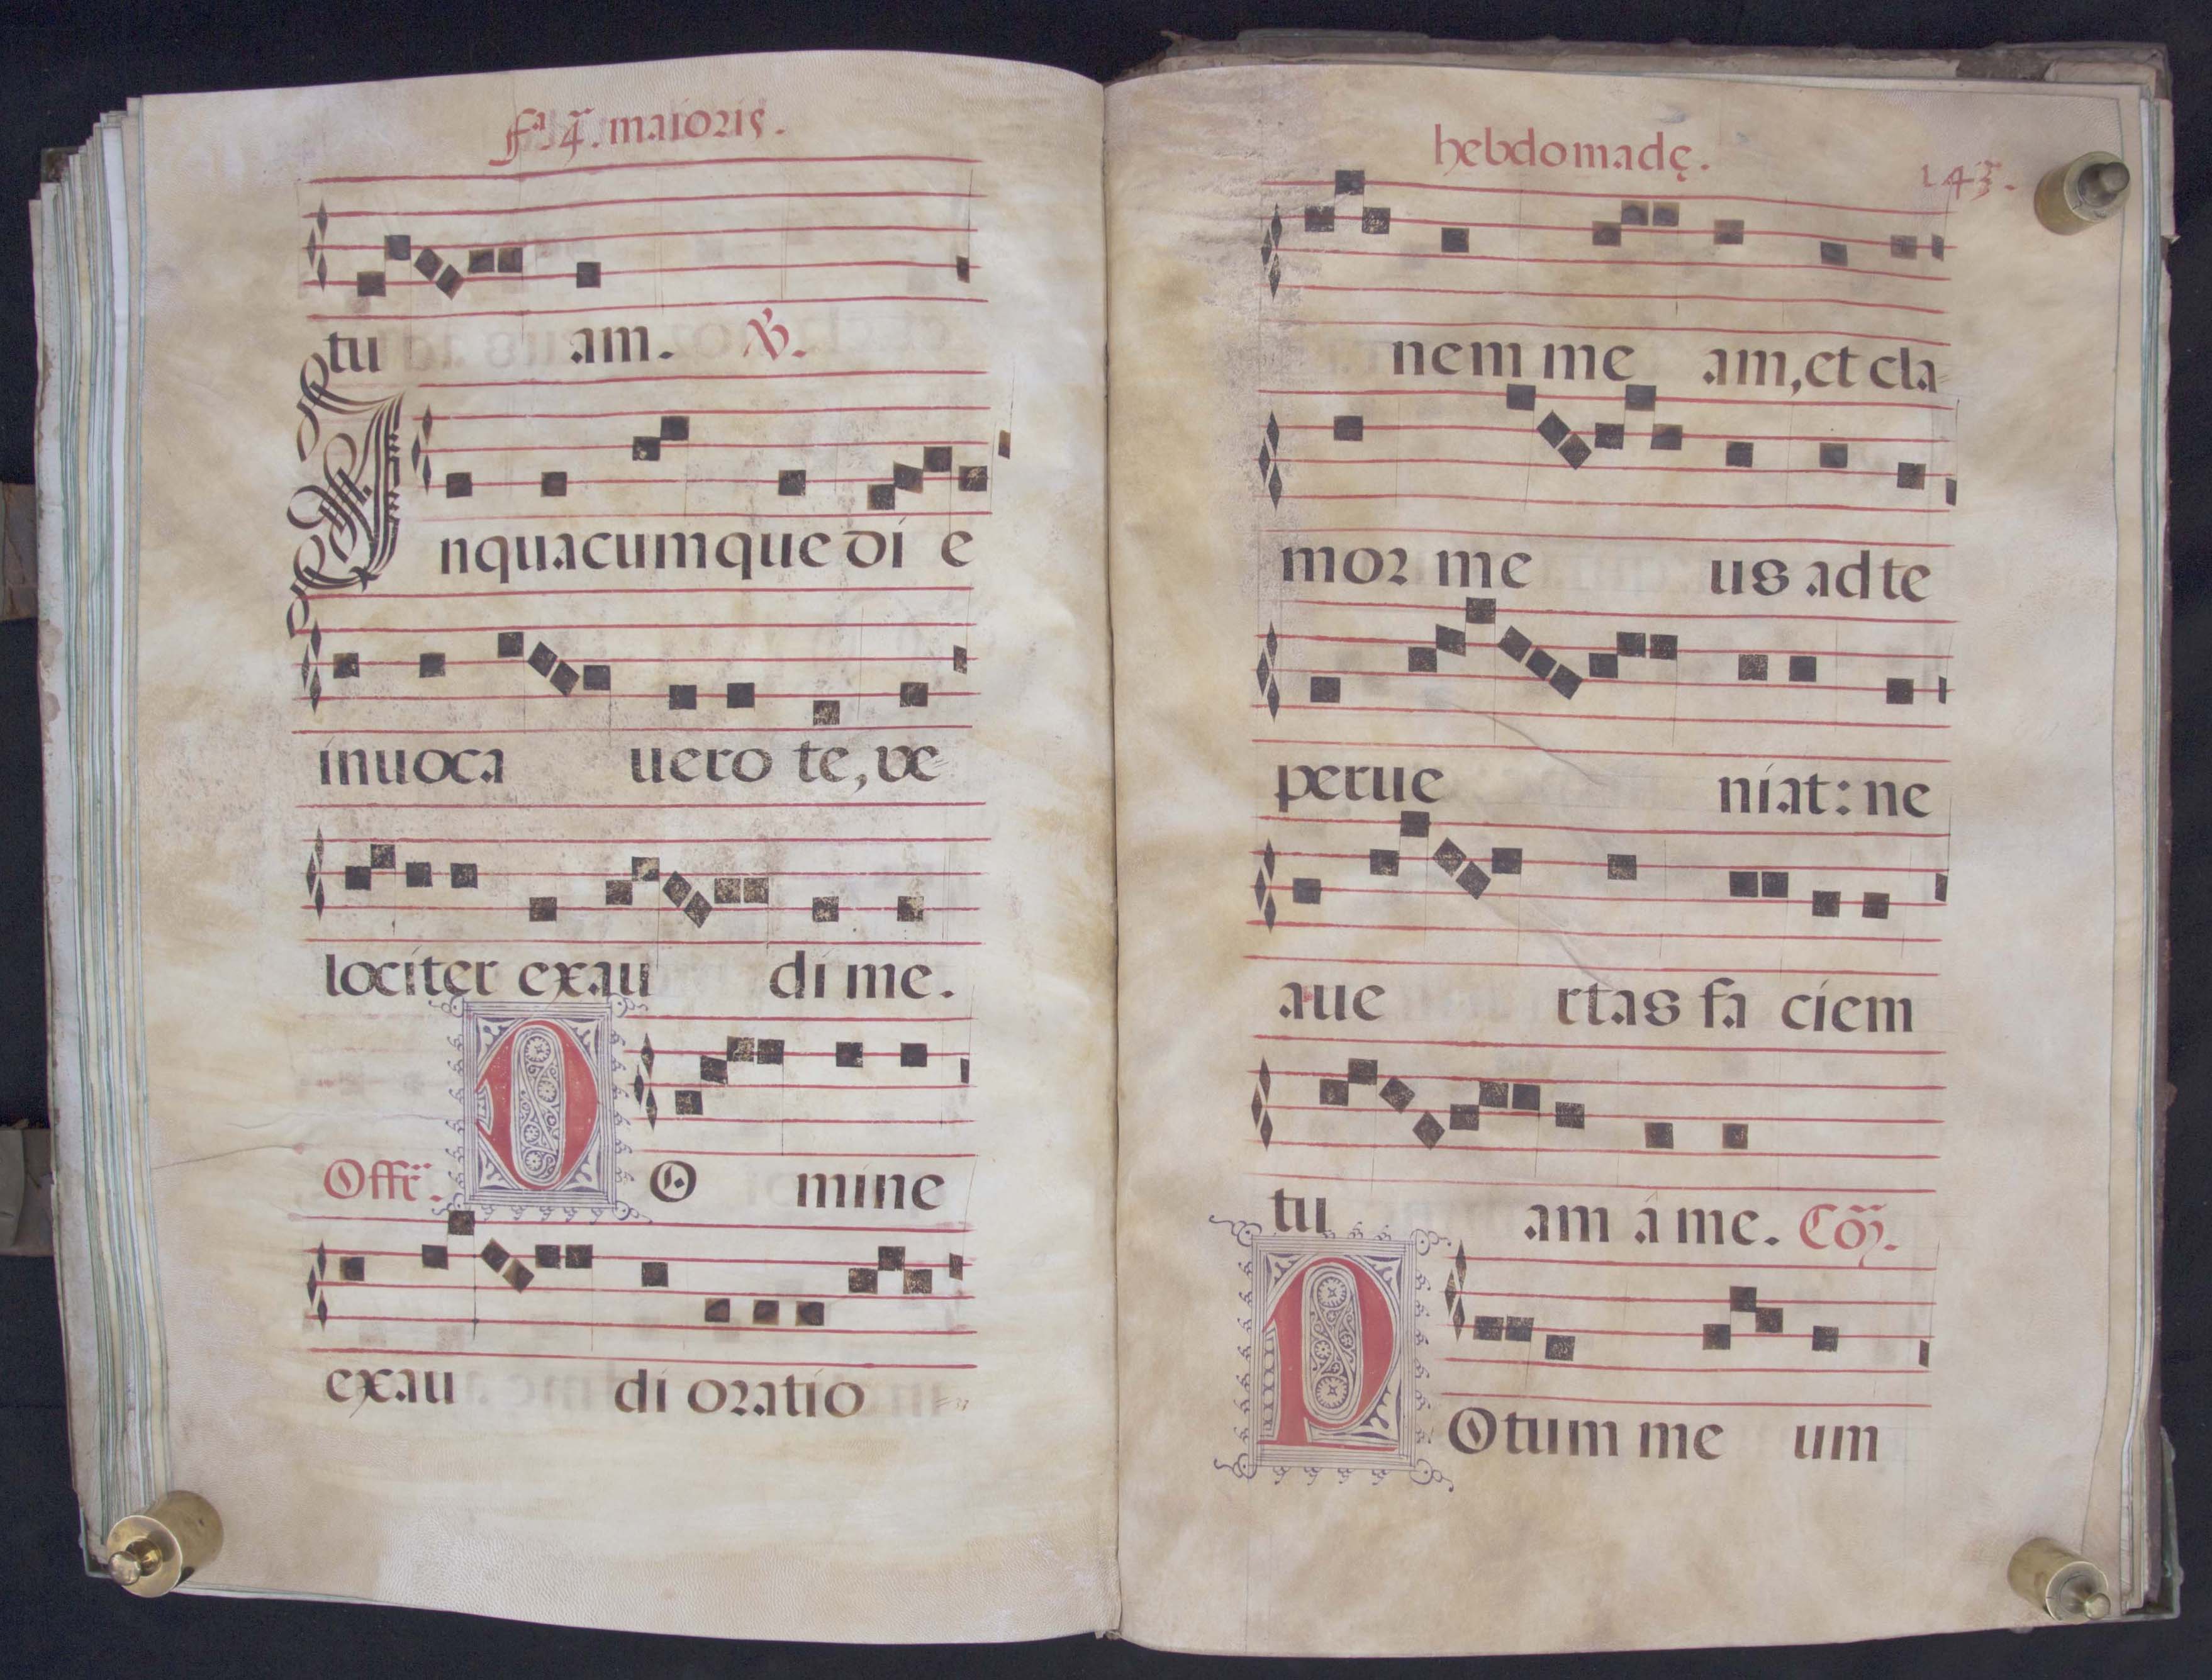 fᵃ 4ᵃ. maioris.
tu am. ℣.
Inquacumque di e
inuoca uero te, ve
lociter exau di me.
Offr. DO mine
exau di oratio
hebdomadę. 143.
nem me am, et cla
mor me us ad te
perue niat: ne
aue rtas fa ciem
tu am á me. Cõ.
POtum me um